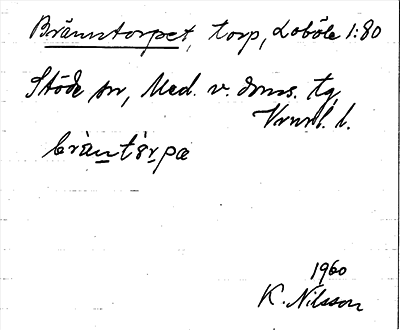 Bränntorpet, torp, Loböle 1:80
Stöde sn, Med. v. doms. tg
l.
bràntårpa
1960
K. Nilsson